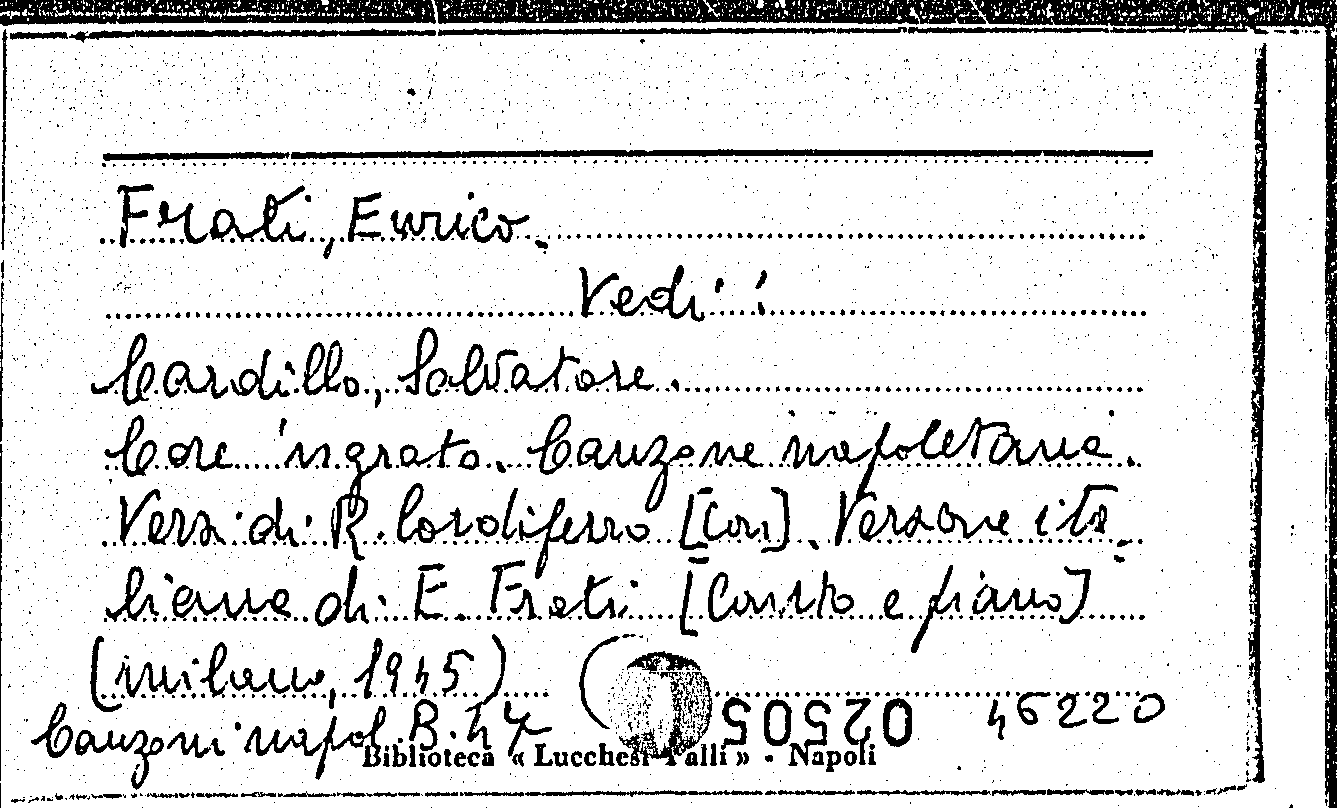 Frati, Enrico.
Vedi:
Cardillo, Salvatore.
Core 'ngrato. Canzone napoletana.
Versi di R. Cordiferro [Con]. Versione ita-
liana di E. Frati [Canto e piano]
(Milano, 1945)
02505 46220
Canzoni napol. B. 47
Biblioteca « Lucchesi Palli » - Napoli